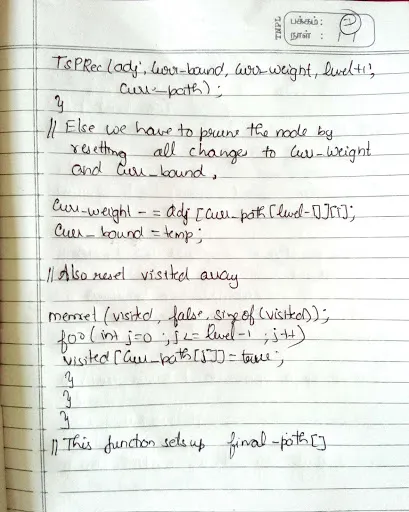 TNPL
பக்கம் :
நாள் :
TSPRec (adj, curr-bound, curr-weight, level+1,
curr-path);
}
// Else we have to prune the node by
resetting all changes to curr-weight
and curr_bound,
curr-weight - = adj [curr_path [level-1]][i];
curr_bound = temp;
// Also reset visited array
memset (visited, false, sizeof (visited));
for (int j=0 ; j<= level-1 ; j++)
visited [curr_path [j]] = true;
}
}
}
// This function sets up final-path[]